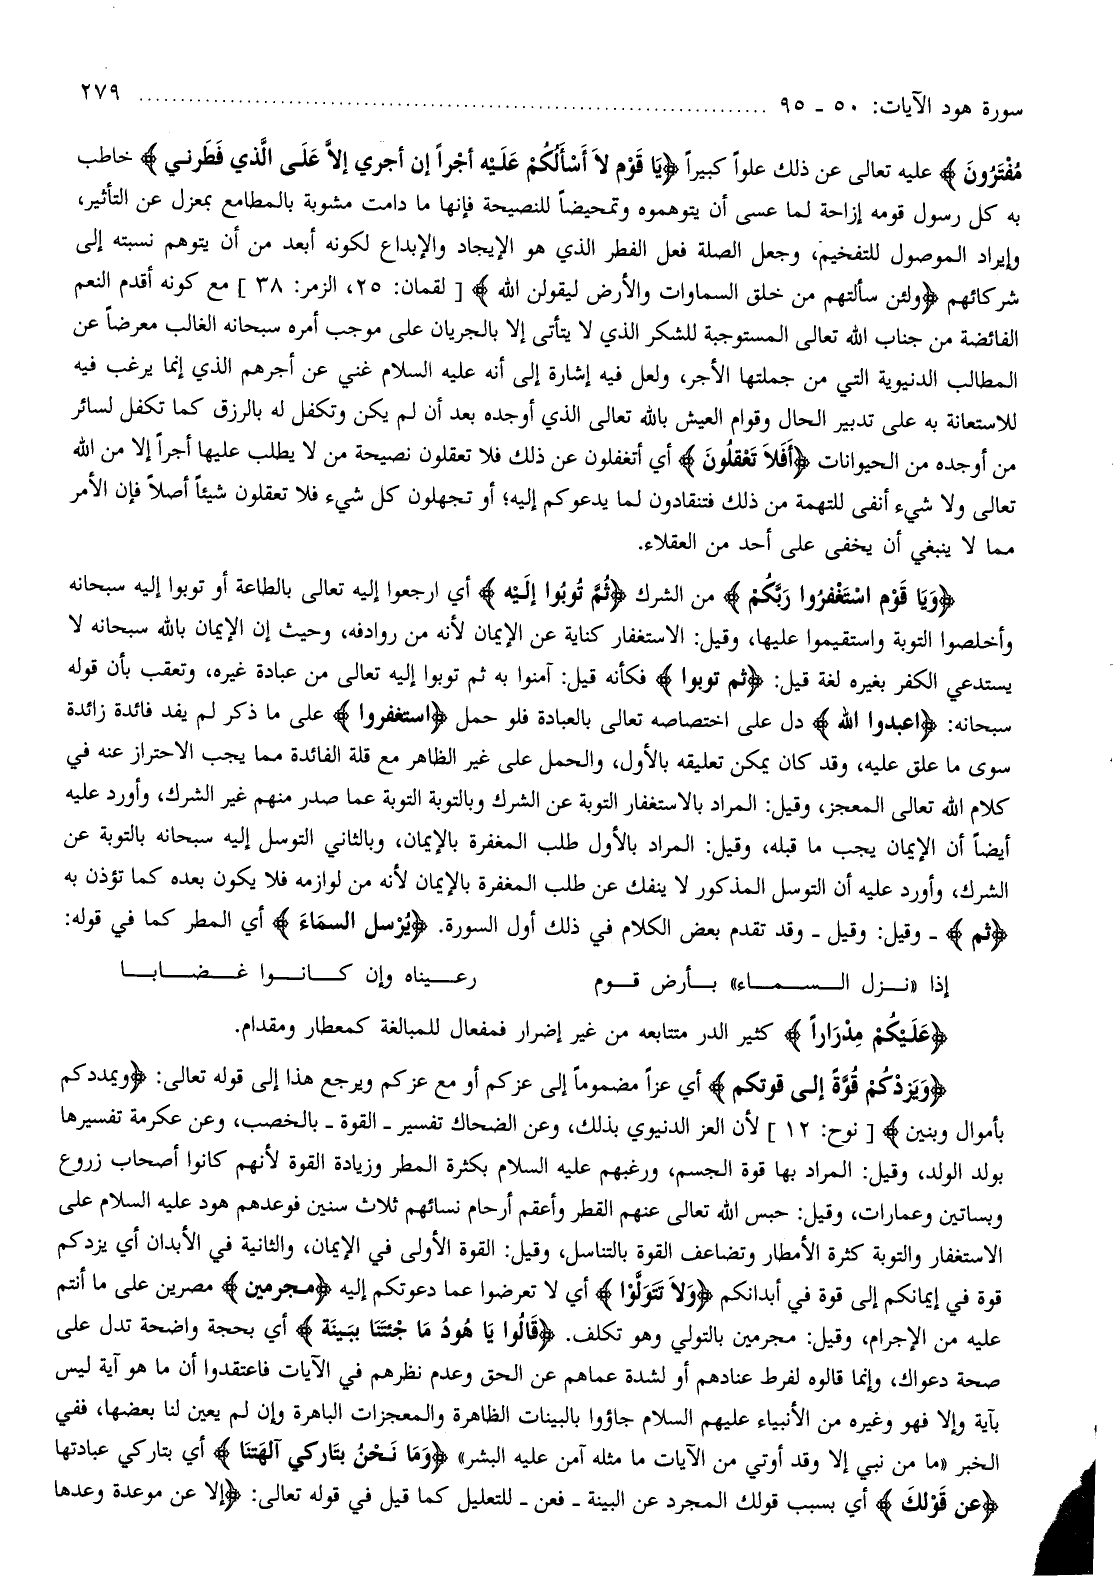 سورة هود الآيات: ٥٠ ـ ٩٥ ........................................................................ ٢٧٩
مُفْتَرُونَ ﴾ عليه تعالى عن ذلك علواً كبيراً ﴿يَا قَوْم لاَ أَسْأَلُكُمْ عَلَيْه أجْراً إن أجري إلاَّ عَلَى الَّذي فَطَرني ﴾ خاطب
به كل رسول قومه إزاحة لما عسى أن يتوهموه وتمحيضاً للنصيحة فإنها ما دامت مشوبة بالمطامع بمعزل عن التأثير،
وإيراد الموصول للتفخيم، وجعل الصلة فعل الفطر الذي هو الإيجاد والإبداع لكونه أبعد من أن يتوهم نسبته إلى
شركائهم ﴿ولئن سألتهم من خلق السماوات والأرض ليقولن الله ﴾ [ لقمان: ٢٥، الزمر: ٣٨ ] مع كونه أقدم النعم
الفائضة من جناب الله تعالى المستوجبة للشكر الذي لا يتأتى إلا بالجريان على موجب أمره سبحانه الغالب معرضاً عن
المطالب الدنيوية التي من جملتها الأجر، ولعل فيه إشارة إلى أنه عليه السلام غني عن أجرهم الذي إنما يرغب فيه
للاستعانة به على تدبير الحال وقوام العيش بالله تعالى الذي أوجده بعد أن لم يكن وتكفل له بالرزق كما تكفل لسائر
من أوجده من الحيوانات ﴿أَفَلاَ تَعْقلُونَ ﴾ أي أتغفلون عن ذلك فلا تعقلون نصيحة من لا يطلب عليها أجراً إلا من الله
تعالى ولا شيء أنفى للتهمة من ذلك فتنقادون لما يدعوكم إليه؛ أو تجهلون كل شيء فلا تعقلون شيئاً أصلاً فإن الأمر
مما لا ينبغي أن يخفى على أحد من العقلاء.
﴿وَيَا قَوْم اسْتَغْفرُوا رَبَّكُمْ ﴾ من الشرك ﴿ثُمَّ تُوبُوا إلَيْه ﴾ أي ارجعوا إليه تعالى بالطاعة أو توبوا إليه سبحانه
وأخلصوا التوبة واستقيموا عليها، وقيل: الاستغفار كناية عن الإيمان لأنه من روادفه، وحيث إن الإيمان بالله سبحانه لا
يستدعي الكفر بغيره لغة قيل: ﴿ثم توبوا ﴾ فكأنه قيل: آمنوا به ثم توبوا إليه تعالى من عبادة غيره، وتعقب بأن قوله
سبحانه: ﴿اعبدوا الله ﴾ دل على اختصاصه تعالى بالعبادة فلو حمل ﴿استغفروا ﴾ على ما ذكر لم يفد فائدة زائدة
سوى ما علق عليه، وقد كان يمكن تعليقه بالأول، والحمل على غير الظاهر مع قلة الفائدة مما يجب الاحتراز عنه في
كلام الله تعالى المعجز، وقيل: المراد بالاستغفار التوبة عن الشرك وبالتوبة التوبة عما صدر منهم غير الشرك، وأورد عليه
أيضاً أن الإيمان يجب ما قبله، وقيل: المراد بالأول طلب المغفرة بالإيمان، وبالثاني التوسل إليه سبحانه بالتوبة عن
الشرك، وأورد عليه أن التوسل المذكور لا ينفك عن طلب المغفرة بالإيمان لأنه من لوازمه فلا يكون بعده كما تؤذن به
﴿ثم ﴾ ـ وقيل: وقيل ـ وقد تقدم بعض الكلام في ذلك أول السورة. ﴿يُرْسل السمَاءَ ﴾ أي المطر كما في قوله:
إذا «نـزل الـسـمـاء» بـأرض قـوم رعـيناه وإن كـانـوا غـضـابـا
﴿عَلَيْكُمْ مِدْرَاراً ﴾ كثير الدر متتابعه من غير إضرار فمفعال للمبالغة كمعطار ومقدام.
﴿وَيَزدْكُمْ قُوَّةً إلى قوتكم ﴾ أي عزاً مضموماً إلى عزكم أو مع عزكم ويرجع هذا إلى قوله تعالى: ﴿ويمددكم
بأموال وبنين ﴾ [ نوح: ١٢ ] لأن العز الدنيوي بذلك، وعن الضحاك تفسير ـ القوة ـ بالخصب، وعن عكرمة تفسيرها
بولد الولد، وقيل: المراد بها قوة الجسم، ورغبهم عليه السلام بكثرة المطر وزيادة القوة لأنهم كانوا أصحاب زروع
وبساتين وعمارات، وقيل: حبس الله تعالى عنهم القطر وأعقم أرحام نسائهم ثلاث سنين فوعدهم هود عليه السلام على
الاستغفار والتوبة كثرة الأمطار وتضاعف القوة بالتناسل، وقيل: القوة الأولى في الإيمان، والثانية في الأبدان أي يزدكم
قوة في إيمانكم إلى قوة في أبدانكم ﴿وَلاَ تَتَولَّوْا ﴾ أي لا تعرضوا عما دعوتكم إليه ﴿مجرمين ﴾ مصرين على ما أنتم
عليه من الإجرام، وقيل: مجرمين بالتولي وهو تكلف. ﴿قَالُوا يَا هُودُ مَا جْئتَنَا ببَينَة ﴾ أي بحجة واضحة تدل على
صحة دعواك، وإنما قالوه لفرط عنادهم أو لشدة عماهم عن الحق وعدم نظرهم في الآيات فاعتقدوا أن ما هو آية ليس
بآية وإلا فهو وغيره من الأنبياء عليهم السلام جاؤوا بالبينات الظاهرة والمعجزات الباهرة وإن لم يعين لنا بعضها، ففي
الخبر «ما من نبي إلا وقد أوتي من الآيات ما مثله آمن عليه البشر» ﴿وَمَا نَحْنُ بتَاركي آلهَتنَا ﴾ أي بتاركي عبادتها
﴿عن قَوْلكَ ﴾ أي بسبب قولك المجرد عن البينة ـ فعن ـ للتعليل كما قيل في قوله تعالى: ﴿إلا عن موعدة وعدها